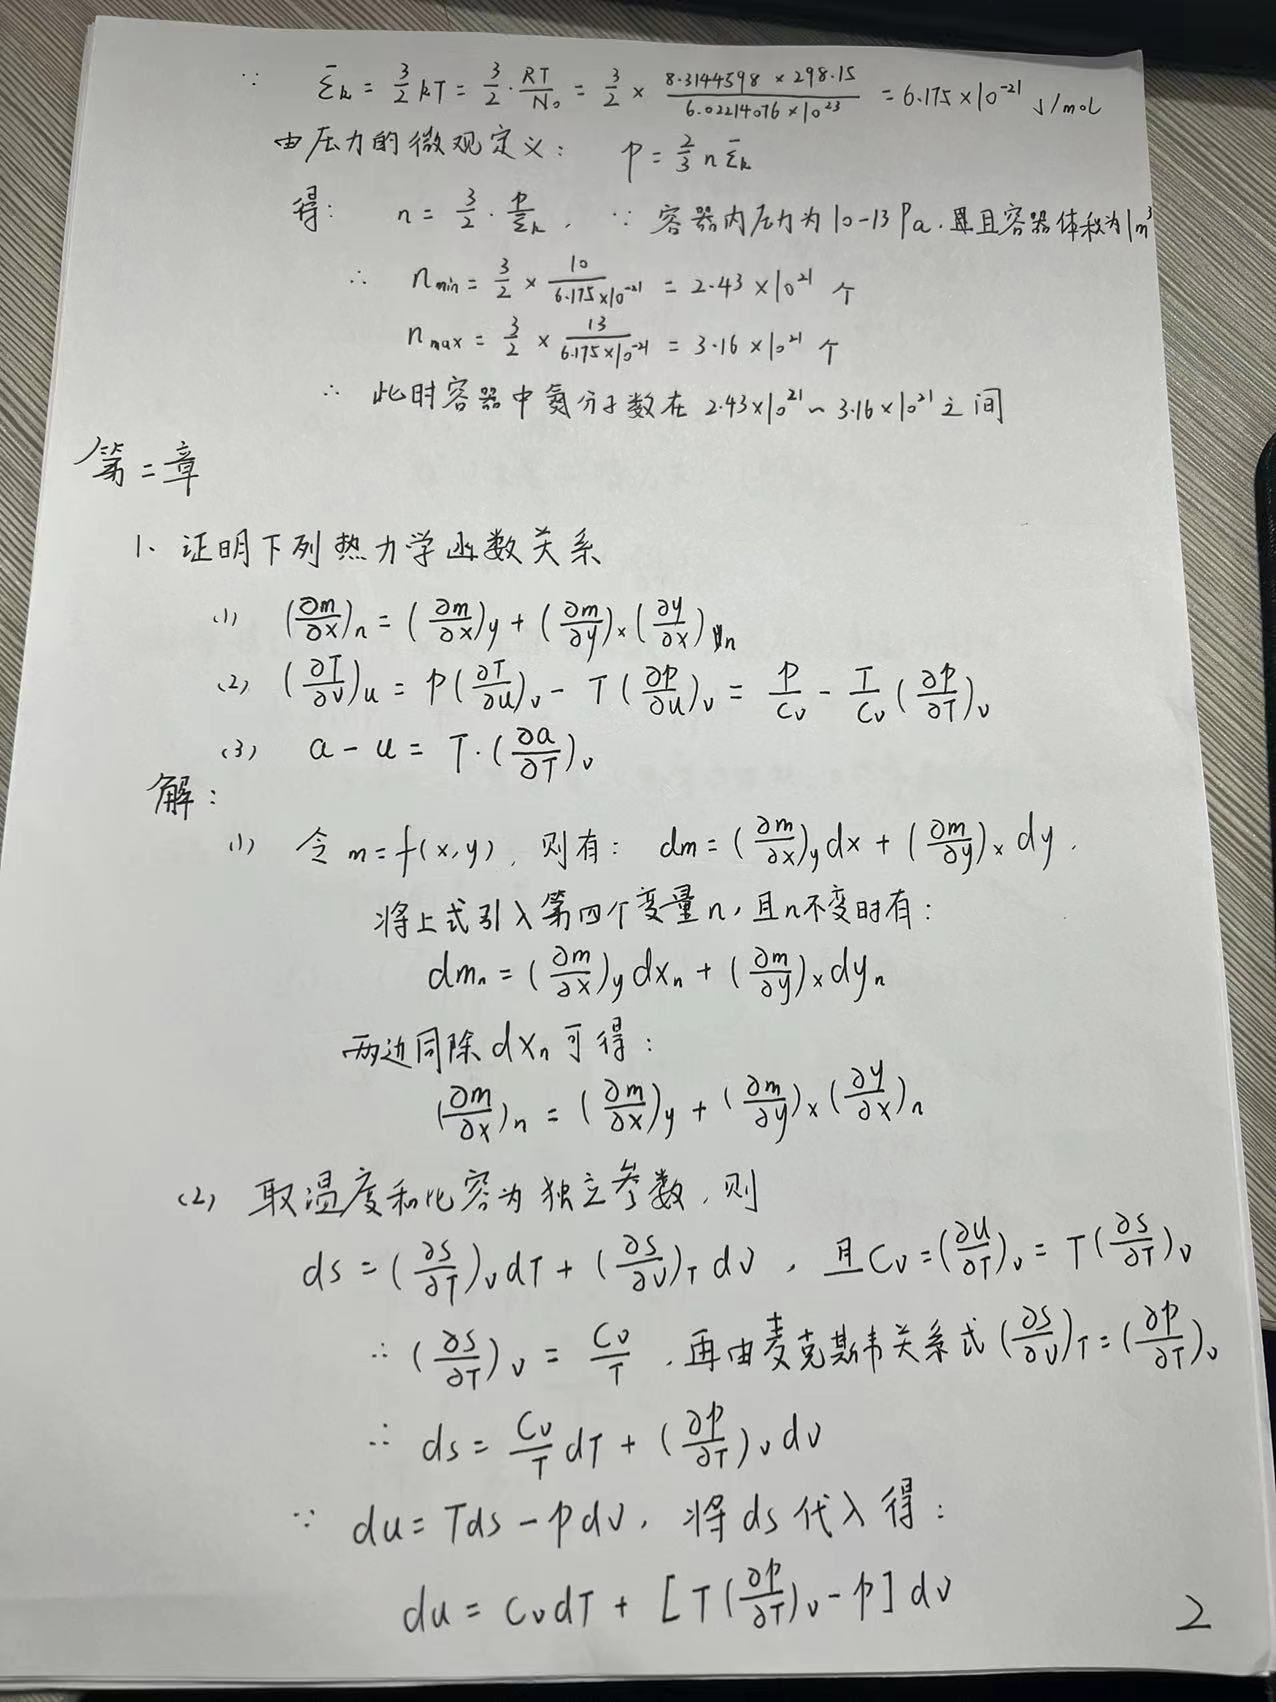 ∵ ε̄k = 3/2 kT = 3/2 · RT/N₀ = 3/2 × (8.3144598 × 298.15)/(6.02214076 × 10²³) = 6.175 × 10⁻²¹ J/mol
由压力的微观定义: p = 2/3 n ε̄k
得: n = 3/2 · p/ε̄k , ∵ 容器内压力为 10-13 Pa. 且且容器体积为1m³
∴ nmin = 3/2 × 10/(6.175×10⁻²¹) = 2.43 × 10²¹ 个
nmax = 3/2 × 13/(6.175×10⁻²¹) = 3.16 × 10²¹ 个
∴ 此时容器中氦分子数在 2.43×10²¹ ~ 3.16×10²¹ 之间
第二章
1、证明下列热力学函数关系
(1) (∂m/∂x)n = (∂m/∂x)y + (∂m/∂y)x (∂y/∂x)n
(2) (∂T/∂v)u = p(∂T/∂u)v - T(∂p/∂u)v = p/cv - T/cv (∂p/∂T)v
(3) a - u = T·(∂a/∂T)v
解:
(1) 令 m = f(x,y), 则有: dm = (∂m/∂x)y dx + (∂m/∂y)x dy .
将上式引入第四个变量n, 且n不变时有:
dmn = (∂m/∂x)y dxn + (∂m/∂y)x dyn
两边同除 dxn 可得:
(∂m/∂x)n = (∂m/∂x)y + (∂m/∂y)x (∂y/∂x)n
(2) 取温度和比容为独立参数, 则
ds = (∂s/∂T)v dT + (∂s/∂v)T dv , 且 Cv = (∂u/∂T)v = T(∂s/∂T)v
∴ (∂s/∂T)v = Cv/T , 再由麦克斯韦关系式 (∂s/∂v)T = (∂p/∂T)v
∴ ds = Cv/T dT + (∂p/∂T)v dv
∵ du = Tds - pdv, 将 ds 代入得:
du = CvdT + [T(∂p/∂T)v - p] dv
2